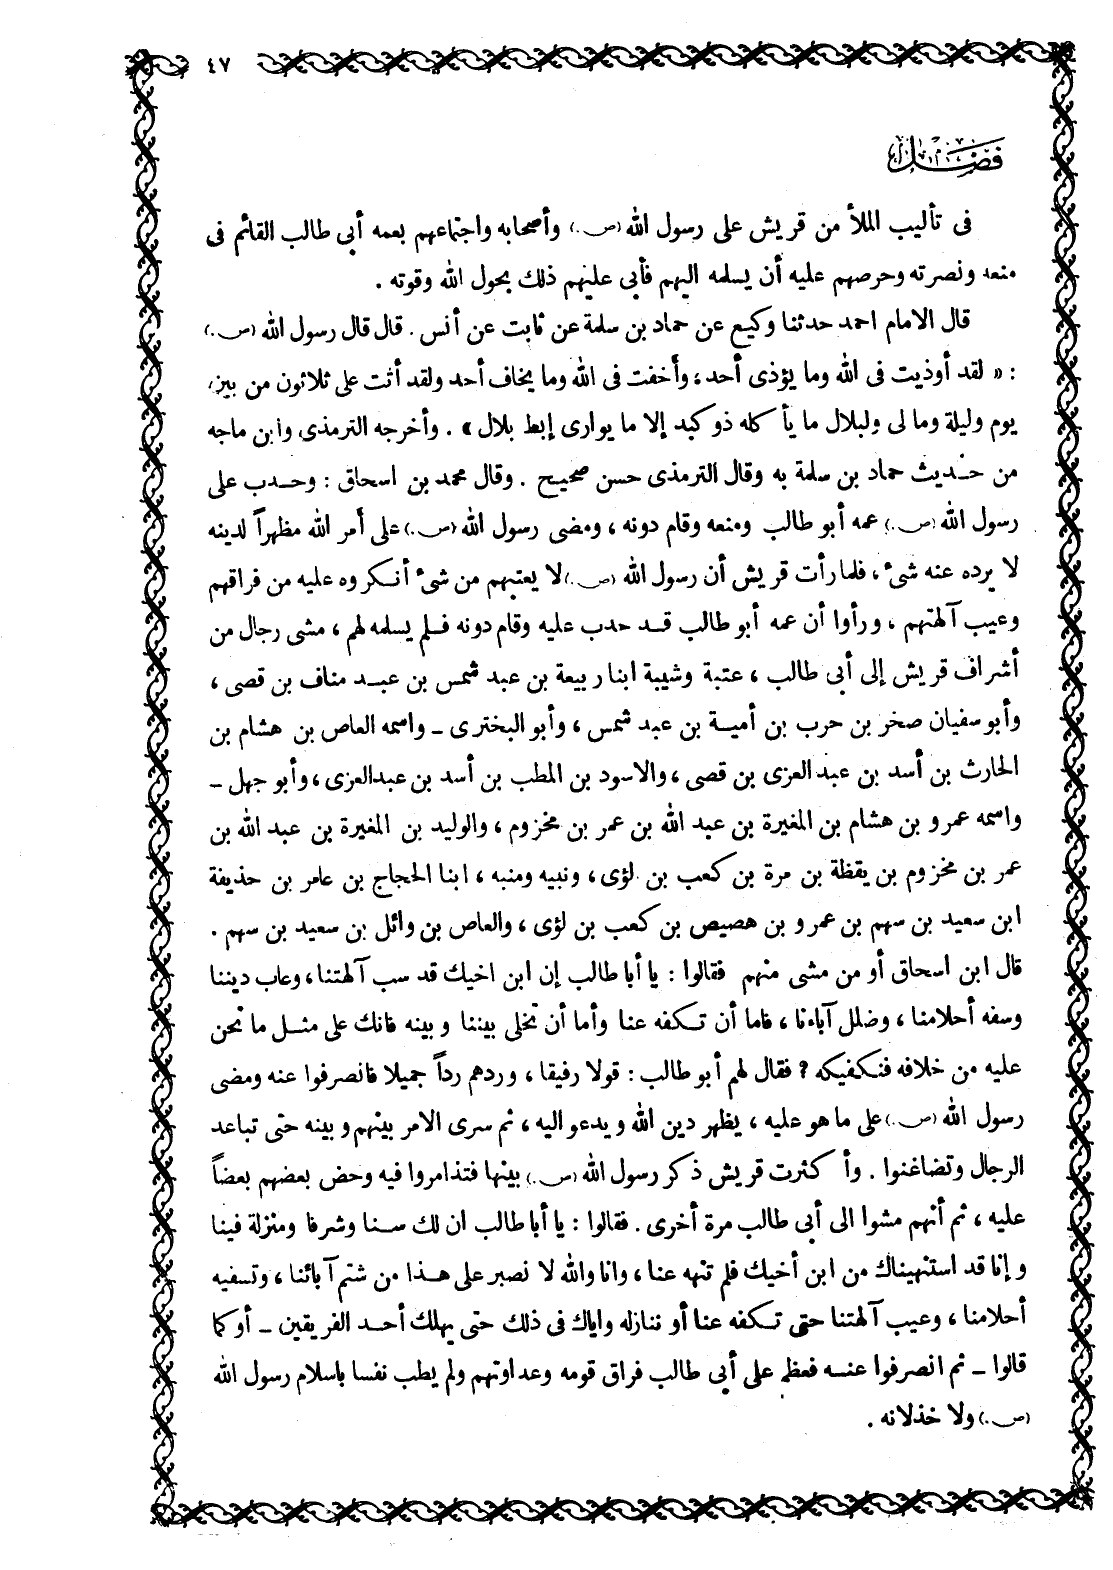 ٤٧
فصل
فى تأليب الملأ من قريش على رسول الله (ص.) وأصحابه واجتماعهم بعمه أبى طالب القائم فى
منعه ونصرته وحرصهم عليه أن يسلمه اليهم فأبى عليهم ذلك بحول الله وقوته .
قال الامام احمد حدثنا وكيع عن حماد بن سلمة عن ثابت عن أنس . قال قال رسول الله (ص.)
: « لقد أوذيت فى الله وما يؤذى أحد ، وأخفت فى الله وما يخاف أحد ولقد أتت على ثلاثون من بين
يوم وليلة وما لى ولبلال ما يأكله ذو كبد إلا ما يوارى إبط بلال » . وأخرجه الترمذى وابن ماجه
من حديث حماد بن سلمة به وقال الترمذى حسن صحيح . وقال محمد بن اسحاق : وحدب على
رسول الله (ص.) عمه أبو طالب ومنعه وقام دونه ، ومضى رسول الله (ص.) على أمر الله مظهراً لدينه
لا يرده عنه شئ ، فلما رأت قريش أن رسول الله (ص.) لا يعتبهم من شئ أنكروه عليه من فراقهم
وعيب آلهتهم ، ورأوا أن عمه أبو طالب قد حدب عليه وقام دونه فلم يسلمه لهم ، مشى رجال من
أشراف قريش إلى أبى طالب ، عتبة وشيبة ابنا ربيعة بن عبد شمس بن عبد مناف بن قصى ،
وأبو سفيان صخر بن حرب بن أمية بن عبد شمس ، وأبو البخترى ـ واسمه العاص بن هشام بن
الحارث بن أسد بن عبد العزى بن قصى ، والاسود بن المطب بن أسد بن عبدالعزى ، وأبو جهل ـ
واسمه عمرو بن هشام بن المغيرة بن عبد الله بن عمر بن مخزوم ، والوليد بن المغيرة بن عبد الله بن
عمر بن مخزوم بن يقظة بن مرة بن كعب بن لؤى ، ونبيه ومنبه ، ابنا الحجاج بن عامر بن حذيفة
ابن سعيد بن سهم بن عمرو بن هصيص بن كعب بن لؤى ، والعاص بن وائل بن سعيد بن سهم .
قال ابن اسحاق أو من مشى منهم فقالوا : يا أبا طالب إن ابن اخيك قد سب آلهتنا ، وعاب ديننا
وسفه أحلامنا ، وضلل آباءنا ، فاما أن تكفه عنا وأما أن تخلى بيننا وبينه فانك على مثل ما نحن
عليه من خلافه فنكفيكه ? فقال لهم أبو طالب : قولا رفيقا ، وردهم رداً جميلا فانصرفوا عنه ومضى
رسول الله (ص.) على ما هو عليه ، يظهر دين الله ويدعو اليه ، ثم سرى الامر بينهم وبينه حتى تباعد
الرجال وتضاغنوا . وأكثرت قريش ذكر رسول الله (ص.) بينها فتذامروا فيه وحض بعضهم بعضاً
عليه ، ثم أنهم مشوا الى أبى طالب مرة أخرى . فقالوا : يا أبا طالب ان لك سنا وشرفا ومنزلة فينا
وإنا قد استنهيناك من ابن أخيك فلم تنهه عنا ، وانا والله لا نصبر على هذا من شتم آبائنا ، وتسفيه
أحلامنا ، وعيب آلهتنا حتى تكفه عنا أو ننازله واياك فى ذلك حتى يهلك أحد الفريقين ـ أو كما
قالوا ـ ثم انصرفوا عنه فعظم على أبى طالب فراق قومه وعداوتهم ولم يطب نفسا باسلام رسول الله
(ص.) ولا خذلانه .